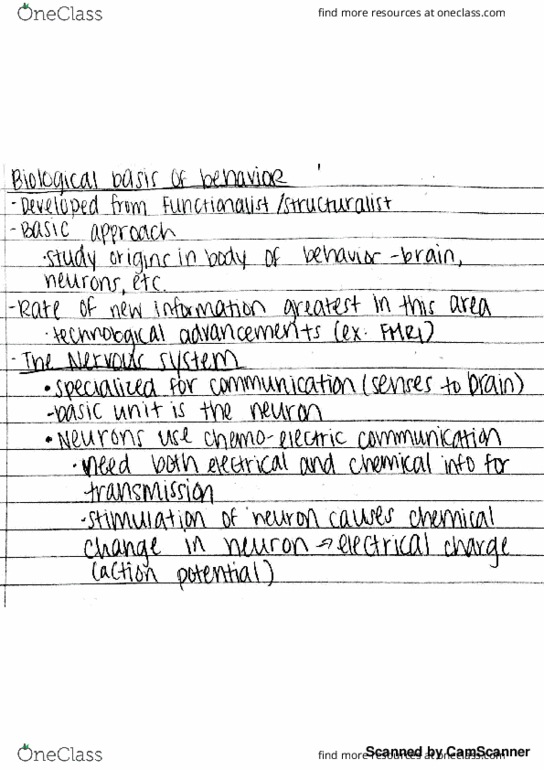 OneClass
find more resources at oneclass.com
Biological basis of behavior
- Developed from Functionalist/structuralist
- Basic approach
· study origins in body of behavior - brain,
neurons, etc.
- Rate of new information greatest in this area
· technological advancements (ex. FMRI)
- The Nervous system
• specialized for communication (senses to brain)
- basic unit is the neuron
• Neurons use chemo-electric communication
· need both electrical and chemical info for
transmission
· stimulation of neuron causes chemical
change in neuron → electrical charge
(action potential)
OneClass
find more resources at oneclass.com
Scanned by CamScanner